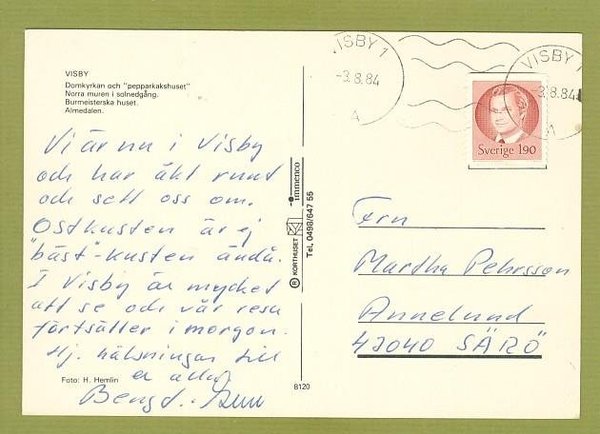 VISBY
Domkyrkan och "pepparkakshuset"
Norra muren i solnedgång.
Burmeisterska huset.
Almedalen.
Vi är nu i Visby
och har åkt runt
och sett oss om.
Ostkusten är ej
"bäst"-kusten ändå.
I Visby är mycket
att se och vår resa
fortsätter i morgon.
Hj. hälsningar till
er alla
Bengt.
Foto: H. Hemlin
8120
® KORTHUSET
Tel. 0498/647 55
immenco
VISBY 1
-3.8.84
A
VISBY 1
-3.8.84
A
Sverige 190
Fru
Martha Pehrsson
Annelund
43040 SÄRÖ